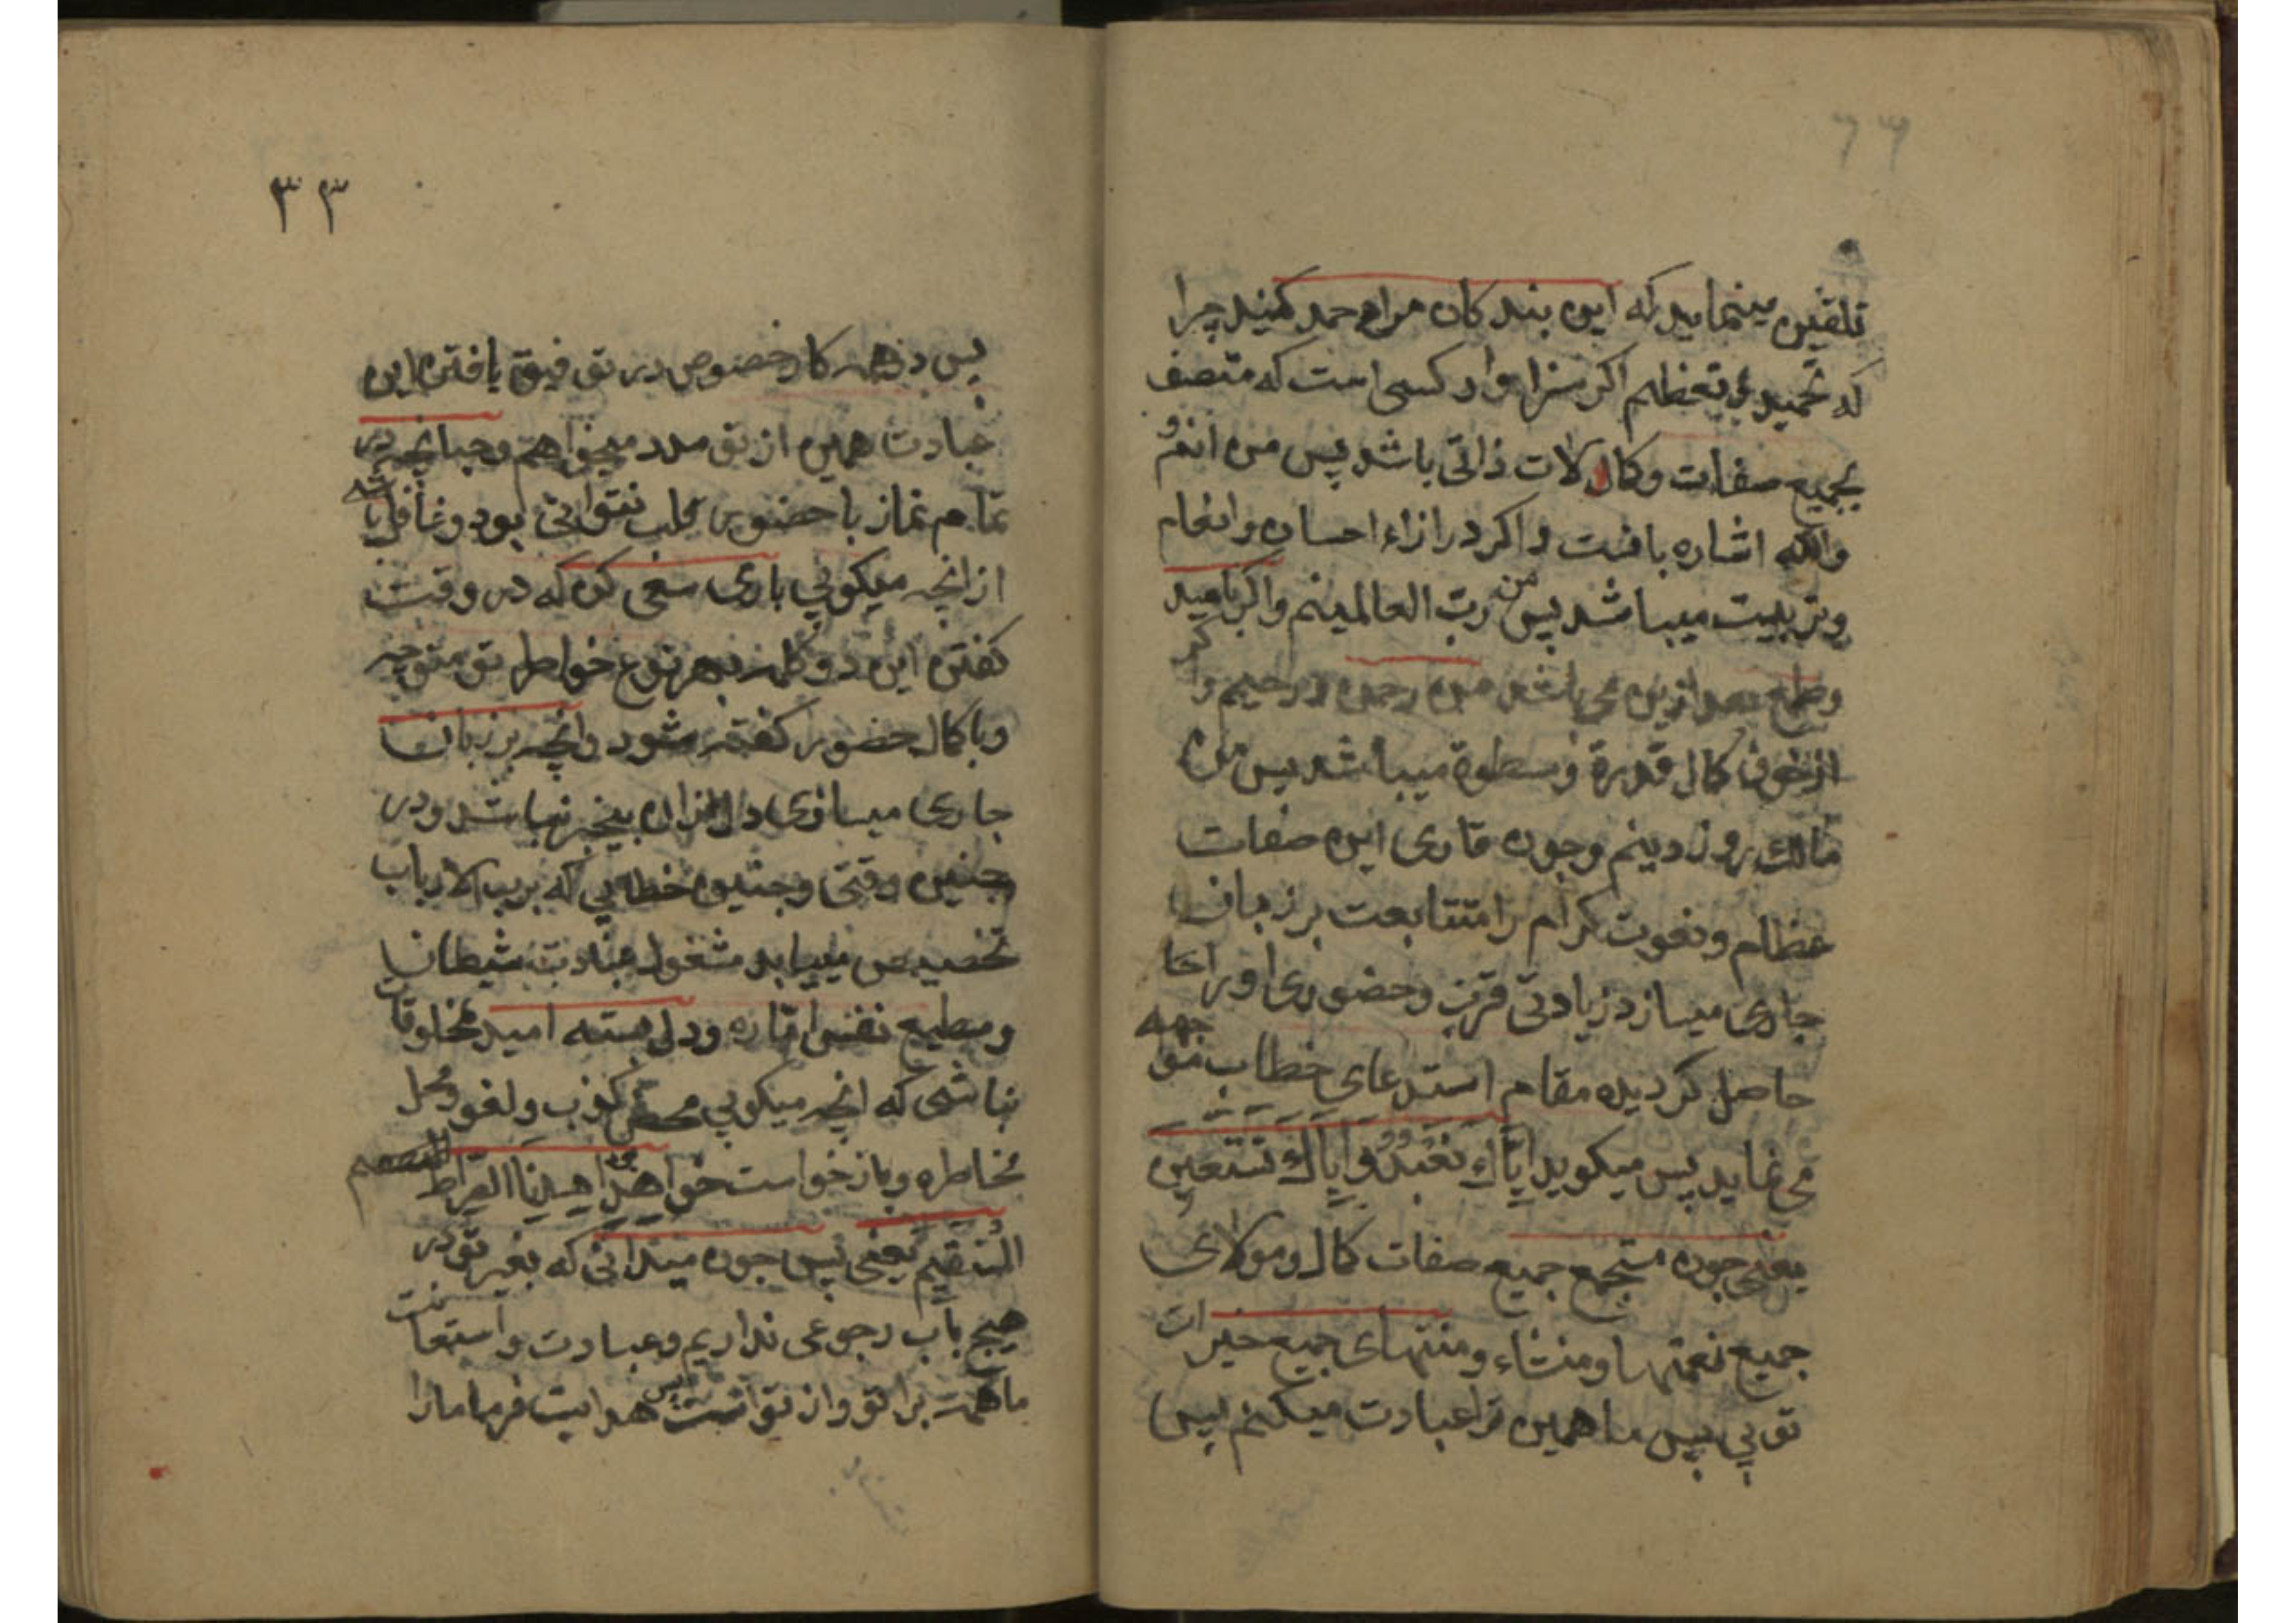 تلقین مینماید که این بندکان مرا حمد کنید چرا
که تحمید و تعظیم اکر سزاوار کسی است که متصف
بجمیع صفات و کمالات ذاتی باشد پس من انم و
والله اشاره بافست و اکر در ازاء احسان و انعام
و تربیت میباشد پس من رب العالمینم و اکر بامید
و طمع بعد ازین می باشد من رحمن و رحیم و اکر
از خوف کمال قدرة و سطوة میباشد پس من
مالك روز دینم و چون قاری این صفات
عظام و نعوت کرام را متتابعت بر زبان
جاری میسازد زیادتی قرب و حضوری او را
حاصل کردیده مقام استدعای خطاب
می نماید پس میکوید اِیَّاكَ نَعْبُدُ وَاِیَّاكَ نَسْتَعِین
یعنی چون مستجمع جمیع صفات کمال و مولای
جمیع نعمتها و منشاء و منتهای جمیع خیرات
تو یی پس ما همین ترا عبادت میکنم پس
۳۳
پس در هر کار خصوص در توفیق یافتن این
عبادت همین از تو مدد میخواهم و چنانچه در
تمام نماز با حضور قلب نتوانی بود و غافل باشی
از انچه میکویی باری سعی کن که در وقت
کفتن این دو کلمه بهر نوع خواطر تو متوجه
و با کمال حضور کفته شود و انچه بر زبان
جاری میسازی دل ازان بیخبر نباشد و در
چنین وقتی و چنین خطابی که برب الارباب
تخصیص مییابد مشغول عبادت شیطان
و مطیع نفس اماره و دل بسته امید مخلوقات
نباشی که انچه میکویی محض کذب و لغو و محل
مخاطره و باز خواست خواهد اهدنا الصراط
المستقیم یعنی پس چون میدانی که بغیر تو در
هیچ باب رجوعی نداریم و عبادت و استعانت
ما همت برا تو و از تو است پس هدایت فرما مارا